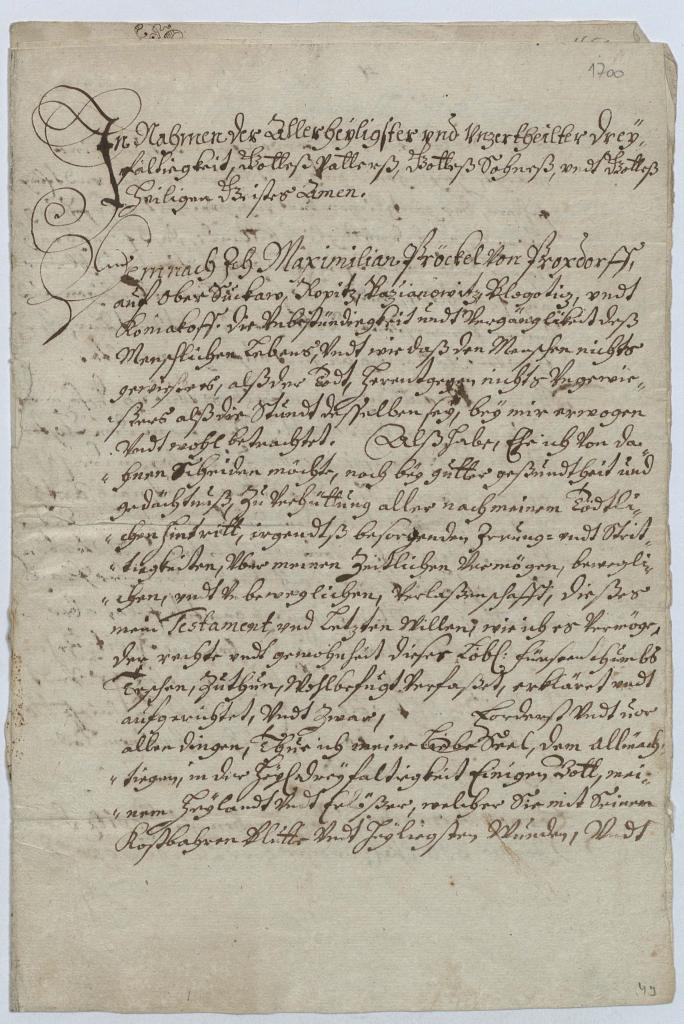 1700
In Nahmen der Allerheyligster und Unzertheilter Drey-
faltiegkeit, Gotteß Vatterß, Gotteß Sohneß, undt Gotteß
Heiligen Geistes Amen.
Demnach Ich Maximilian Pröckel Von Proxdorff,
auf Ober Suckaw, Kopitz, Pazianowitz Blogoticz, undt
Koniakoff. die Unbeständiegkeit undt Vergängligkeit deß
Menschlichen Lebens, Undt wie daß den Menschen nichts
gewießers, alß der Todt, herentgegen nichts Ungewie-
ßers alß die Stundt desselben sey, bey mir erwogen
Undt wohl betrachtet. Alß habe, Ehe ich Von da-
hnen Scheiden möchte, noch bey gutter gesundtheit und
gedächtnuß, Zu Verhüttung aller nach meinem Tödtli-
chen hintritt, irgendtß besorgenden Irrung- undt Streit-
tiegkeiten, Uber meinen Zeittlichen Vermögen, bewegli-
chen, undt Unbeweglichen, Verlaßenschafft, dießes
mein Testament und Letzten Willen, wie ich es Vermöge,
der rechte undt gewohnheit dieses Löbl: Fürstenthumbs
Teschen, Zuthun, Wohlbefugt Verfaßet, erkläret undt
aufgerichtet, Undt Zwar, Forderst Undt vor
allen dingen, Thue ich meine Liebe Seel, dem allmäch-
tiegen, in der Heyl: dreyfaltiegkeit Einigen Gott, mei-
nem Heylandt Undt Erlößer, welcher Sie mit Seinem
Kostbahren Blutte Undt Heyliegsten Wunden, Undt
49